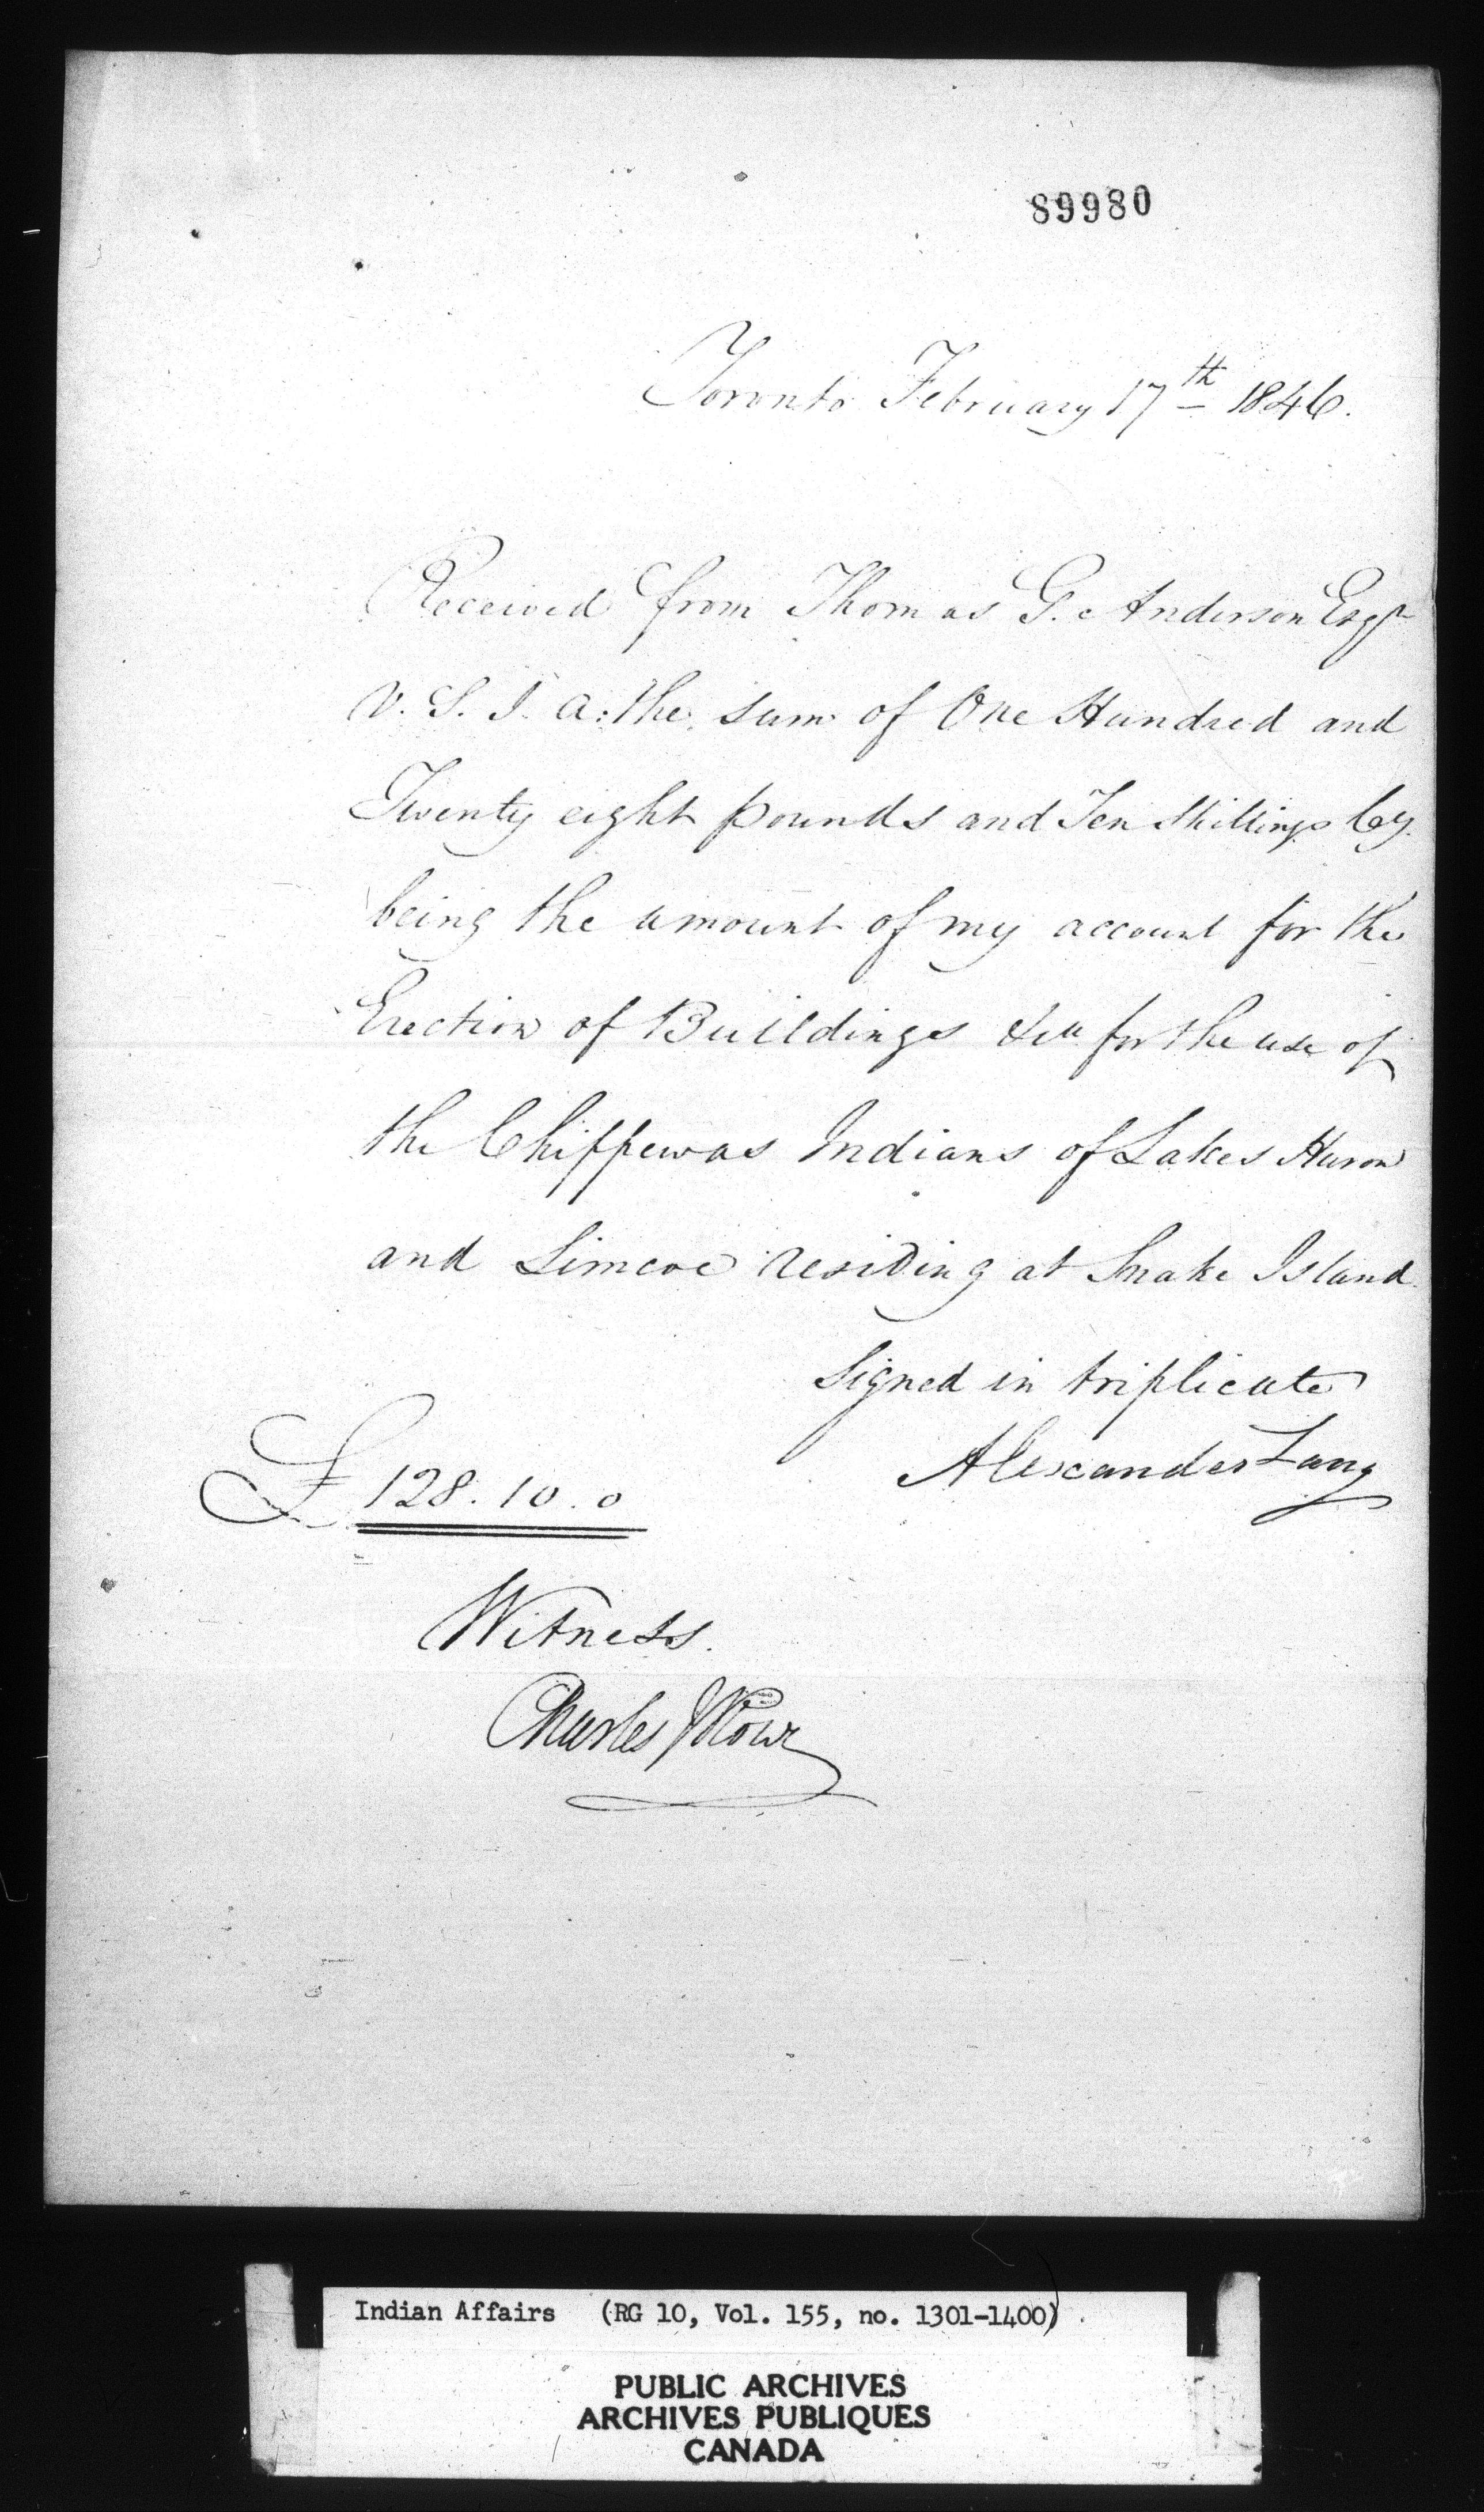 89980
Toronto February 17th 1846.
Received from Thomas G. Anderson Esqr
V. S. I. A: the sum of One Hundred and
Twenty eight pounds and Ten Shillings Cy.
being the amount of my account for the
Erection of Buildings &ca for the use of
the Chippewas Indians of Lakes Huron
and Simcoe residing at Snake Island.
Signed in triplicate
Alexander Lang
£ 128. 10. 0
Witness.
Charles
Indian Affairs (RG 10, Vol. 155, no. 1301-1400)
PUBLIC ARCHIVES
ARCHIVES PUBLIQUES
CANADA